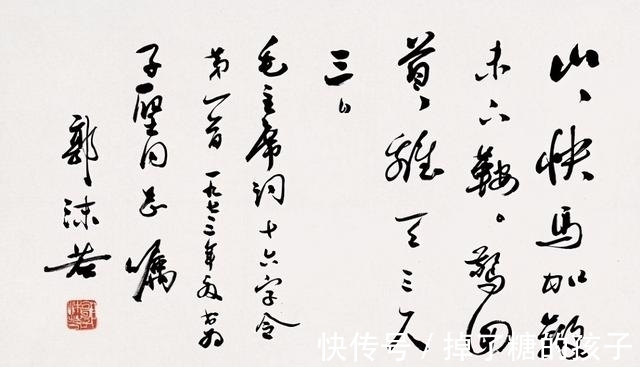 山、快馬加鞭
未下鞍。驚回
首、離天三尺
三。
毛主席詞十六字令
第一首 一九七三年 书为
子 同志嘱
郭沫若
快传号/掉了糖的孩子